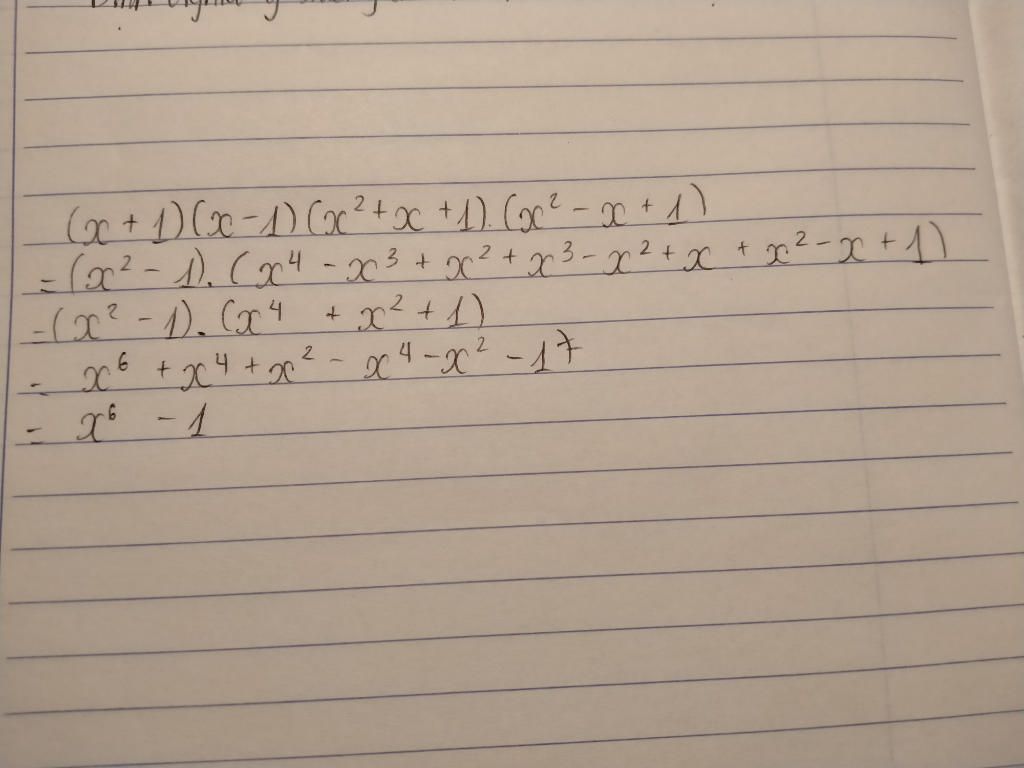 (x + 1)(x - 1)(x² + x + 1).(x² - x + 1)
= (x² - 1).(x⁴ - x³ + x² + x³ - x² + x + x² - x + 1)
= (x² - 1).(x⁴ + x² + 1)
= x⁶ + x⁴ + x² - x⁴ - x² - 1
= x⁶ - 1